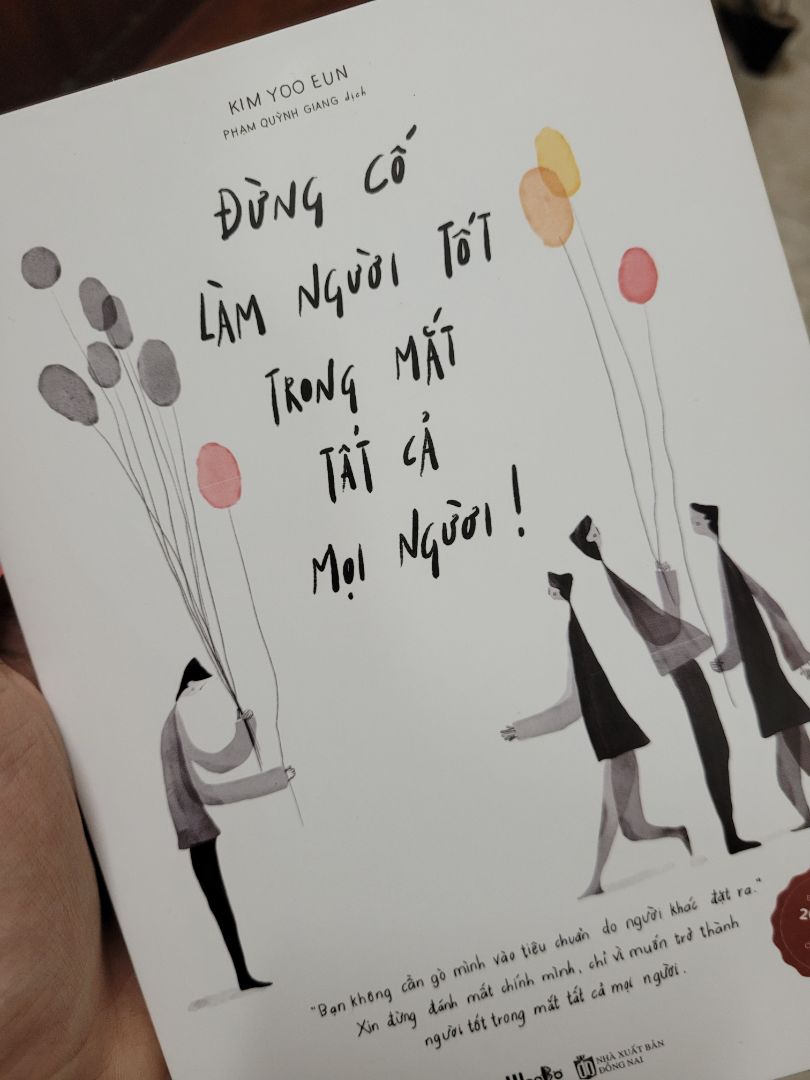 KIM YOO EUN
PHẠM QUỲNH GIANG dịch
ĐỪNG CỐ
LÀM NGƯỜI TỐT
TRONG MẮT
TẤT CẢ
MỌI NGƯỜI!
"Bạn không cần gò mình vào tiêu chuẩn do người khác đặt ra."
Xin đừng đánh mất chính mình, chỉ vì muốn trở thành
người tốt trong mắt tất cả mọi người.
NHÀ XUẤT BẢN
ĐỒNG NAI